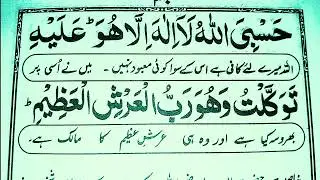 حَسْبِيَ اللّٰهُ لَاۤ اِلٰهَ اِلَّا هُوَ ؕ عَلَيْهِ
اللہ میرے لئے کافی ہے اس کے سوا کوئی معبود نہیں ۔ میں نے اُسی پر
تَوَكَّلْتُ وَهُوَ رَبُّ الْعَرْشِ الْعَظِيْمِ ؕ
بھروسہ کیا ہے اور وہ ہی عرشِ عظیم کا مالک ہے ۔